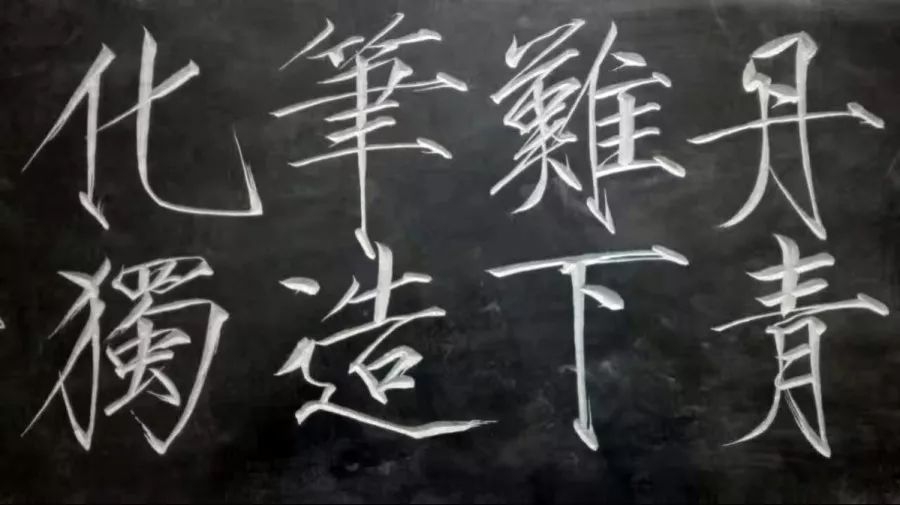 丹青
難下
筆造
化獨